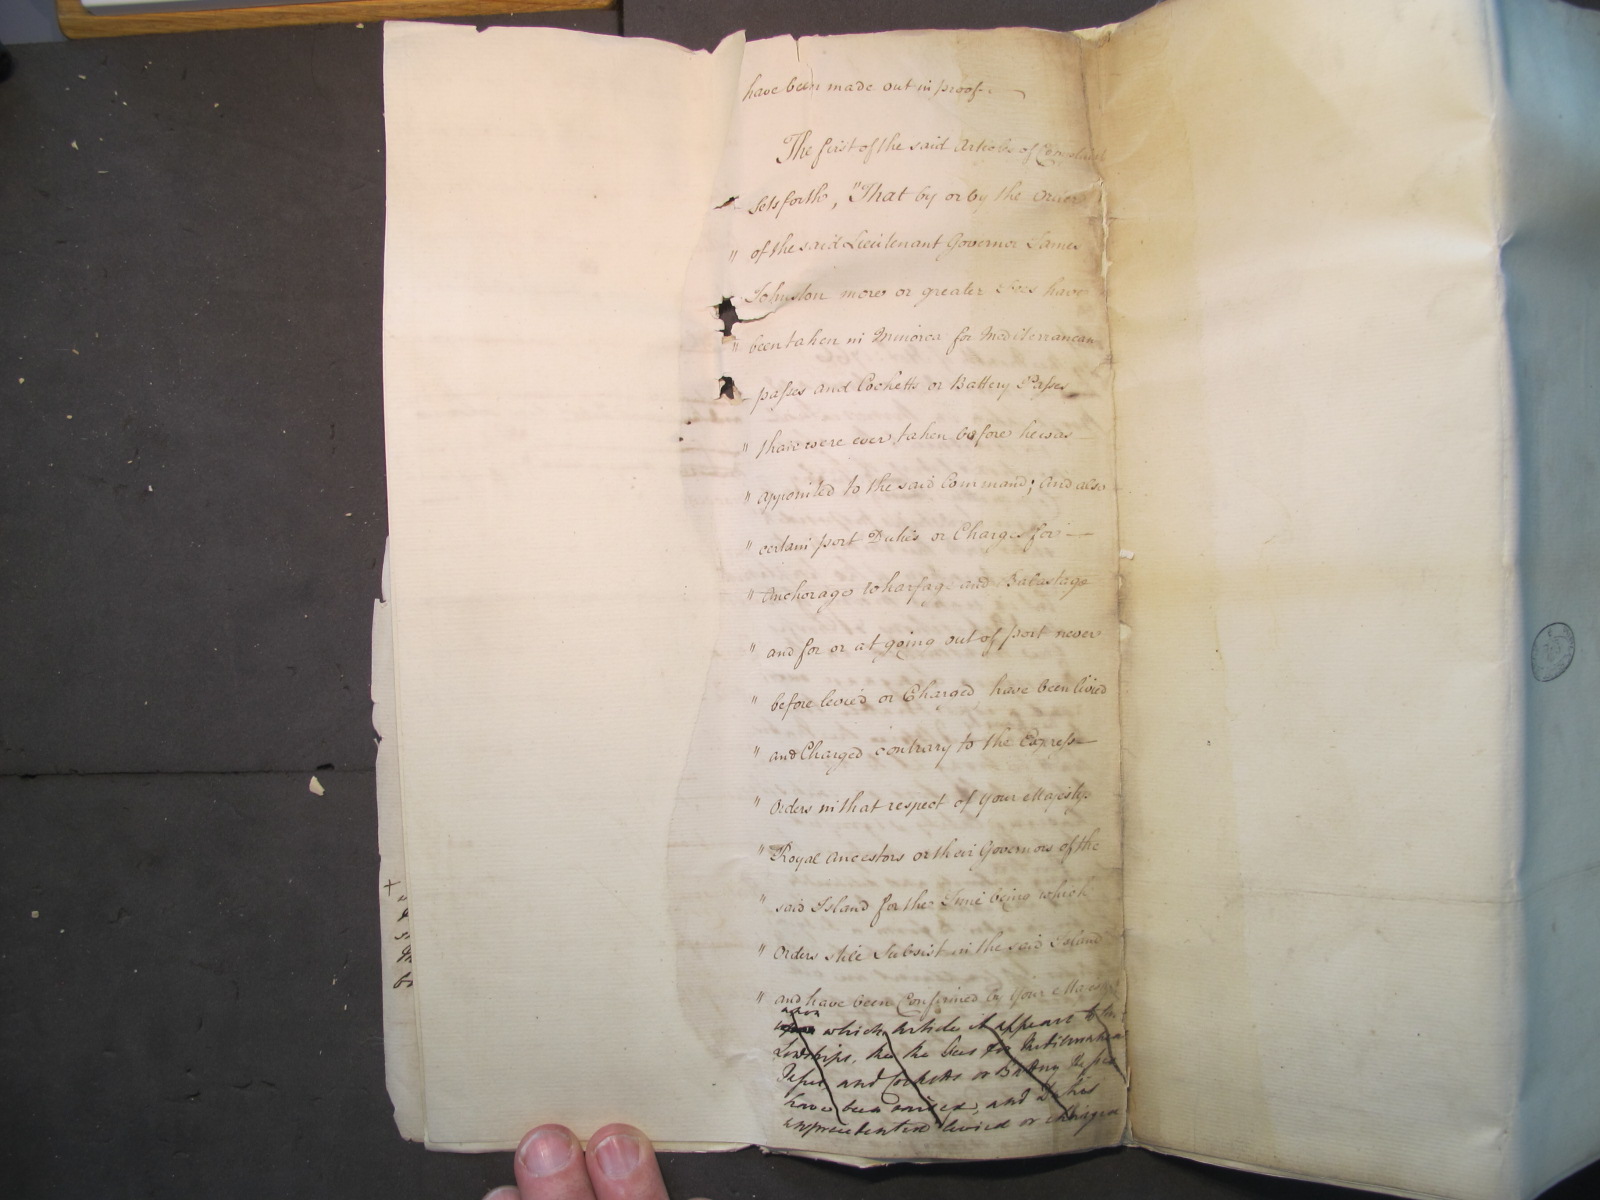 have been made out in proof.
The first of the said Articles of Complaint
Sets forth, "That by or by the Order
" of the said Lieutenant Governor James
Johnston more or greater Fees have
" been taken in Minorca for Mediterranean
passes and Cocketts or Battery Passes
" than were ever taken before he was
" appointed to the said Command; And also
" certain port Duties or Charges for
" Anchorage Wharfage and Balastage
" and for or at going out of port never
" before levied or Charged, have been levied
" and Charged contrary to the Express
" Orders in that respect of Your Majesty's
" Royal Ancestors or their Governors of the
" said Island for the Time being which
" Orders still Subsist in the said Island
" and have been Confirmed by Your Majesty
upon
which Article it appears to the
Lordships, the Fees for Mediterranean
Passes and Cocketts or Battery Passes
have been raised, and Duties
unprecedented levied or charged